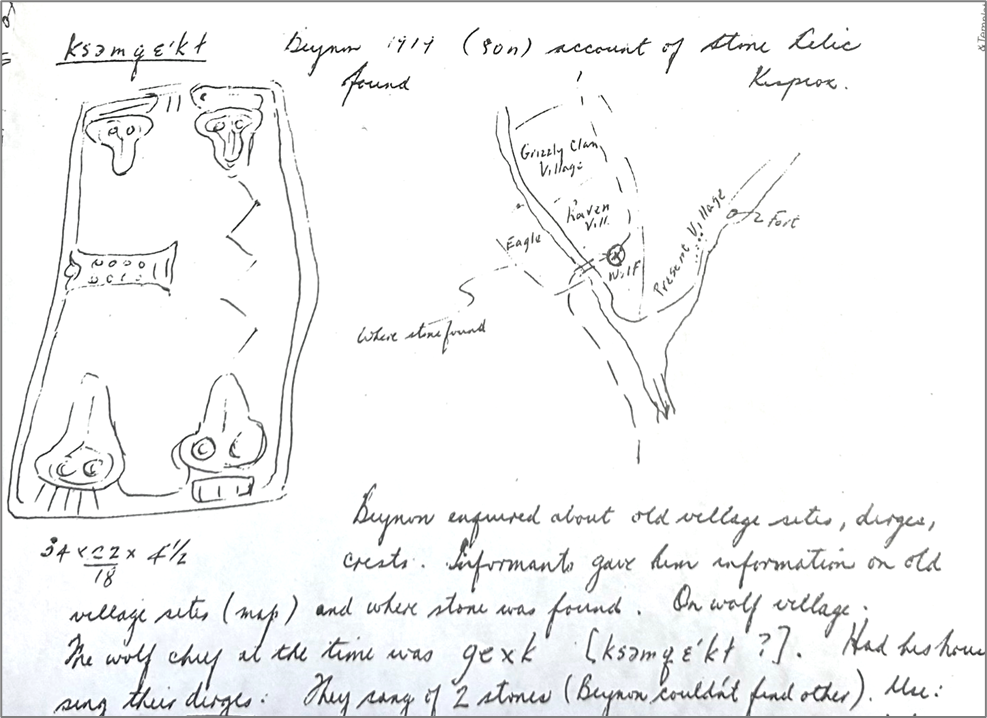 ksəmgɛ́kt Beynon 1919 (son) account of stone relic
found Kispiox.
Grizzly Clan
Village
Raven
Vill.
Eagle
Wolf
Present Village
Fort
Where stone found
34 x 22 x 4½
18
Beynon enquired about old village sites, dirges,
crests. Informants gave him information on old
village sites (map) and where stone was found. On wolf village.
The wolf chief at the time was gexk [ksəmgɛ́kt ?]. Had his house
sing their dirges: They sang of 2 stones (Beynon couldn't find other). Use: